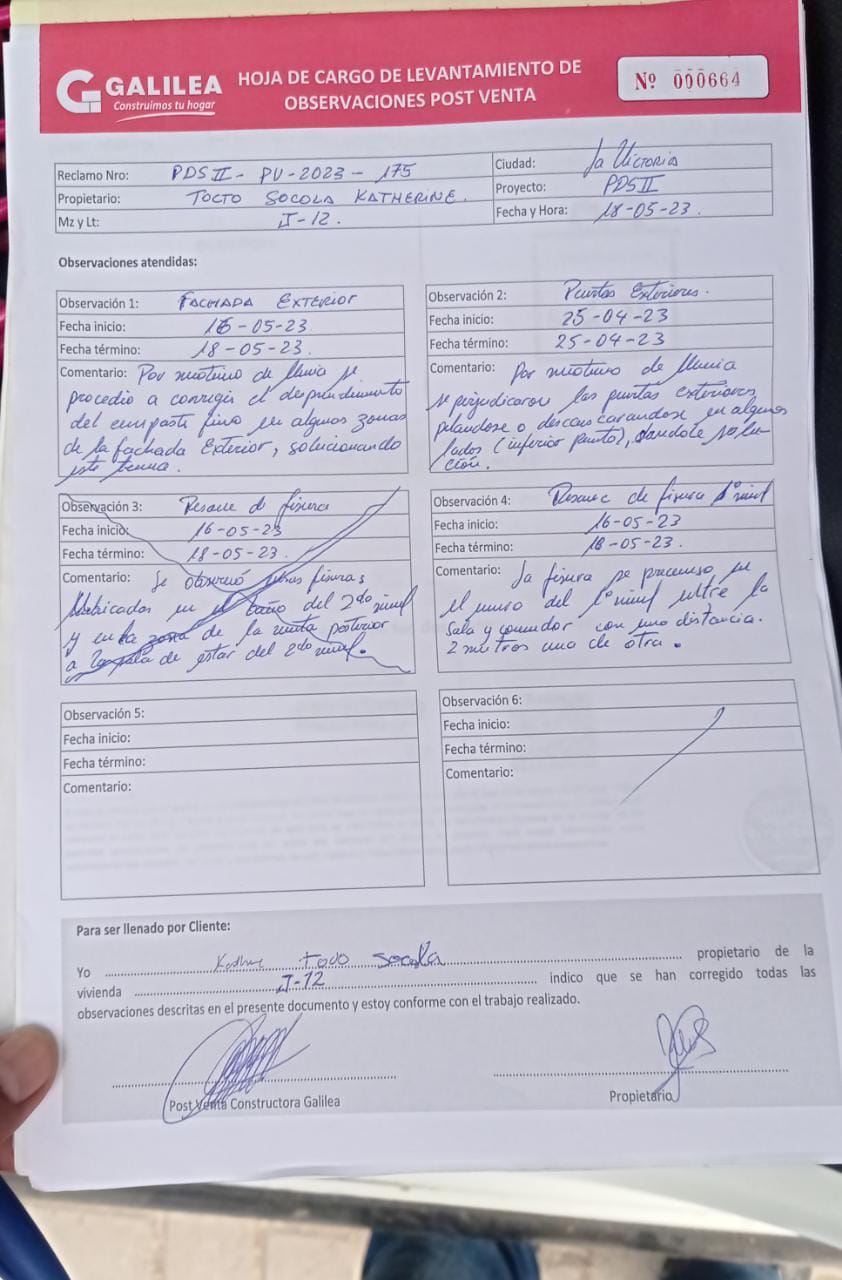 GALILEA
Construimos tu hogar
HOJA DE CARGO DE LEVANTAMIENTO DE
OBSERVACIONES POST VENTA
Nº 000664
Reclamo Nro: PDS II - PU - 2023 - 175
Propietario: TOCTO SOCOLA KATHERINE.
Mz y Lt: J-12.
Ciudad: La Victoria
Proyecto: PDS II
Fecha y Hora: 18-05-23.
Observaciones atendidas:
Observación 1: FACHADA EXTERIOR
Fecha inicio: 16-05-23
Fecha término: 18-05-23.
Comentario: Por motivo de lluvia se
procedio a corregir el desprendimiento
del empaste fino en algunos zonas
de la fachada Exterior, solucionando
este tema.
Observación 2: Puertas Exteriores.
Fecha inicio: 25-04-23
Fecha término: 25-04-23
Comentario: Por motivo de lluvia
se perjudicaron las puertas exteriores
pelandose o descascarandose en algunos
lados (inferior puerta), dandole solu-
ción.
Observación 3: Resane de fisura
Fecha inicio: 16-05-23
Fecha término: 18-05-23.
Comentario: Se observó fisuras
en el baño del 2do nivel
y en la zona de la posterior
a sala de estar del 2do nivel.
Observación 4: Resane de fisura 1º nivel
Fecha inicio: 16-05-23
Fecha término: 18-05-23.
Comentario: La fisura se en
el muro del 1º nivel entre la
sala y comedor con una distancia.
2 metros uno de otra.
Observación 5:
Fecha inicio:
Fecha término:
Comentario:
Observación 6:
Fecha inicio:
Fecha término:
Comentario:
Para ser llenado por Cliente:
Yo Socola propietario de la
vivienda J-12 indico que se han corregido todas las
observaciones descritas en el presente documento y estoy conforme con el trabajo realizado.
Post Venta Constructora Galilea
Propietario